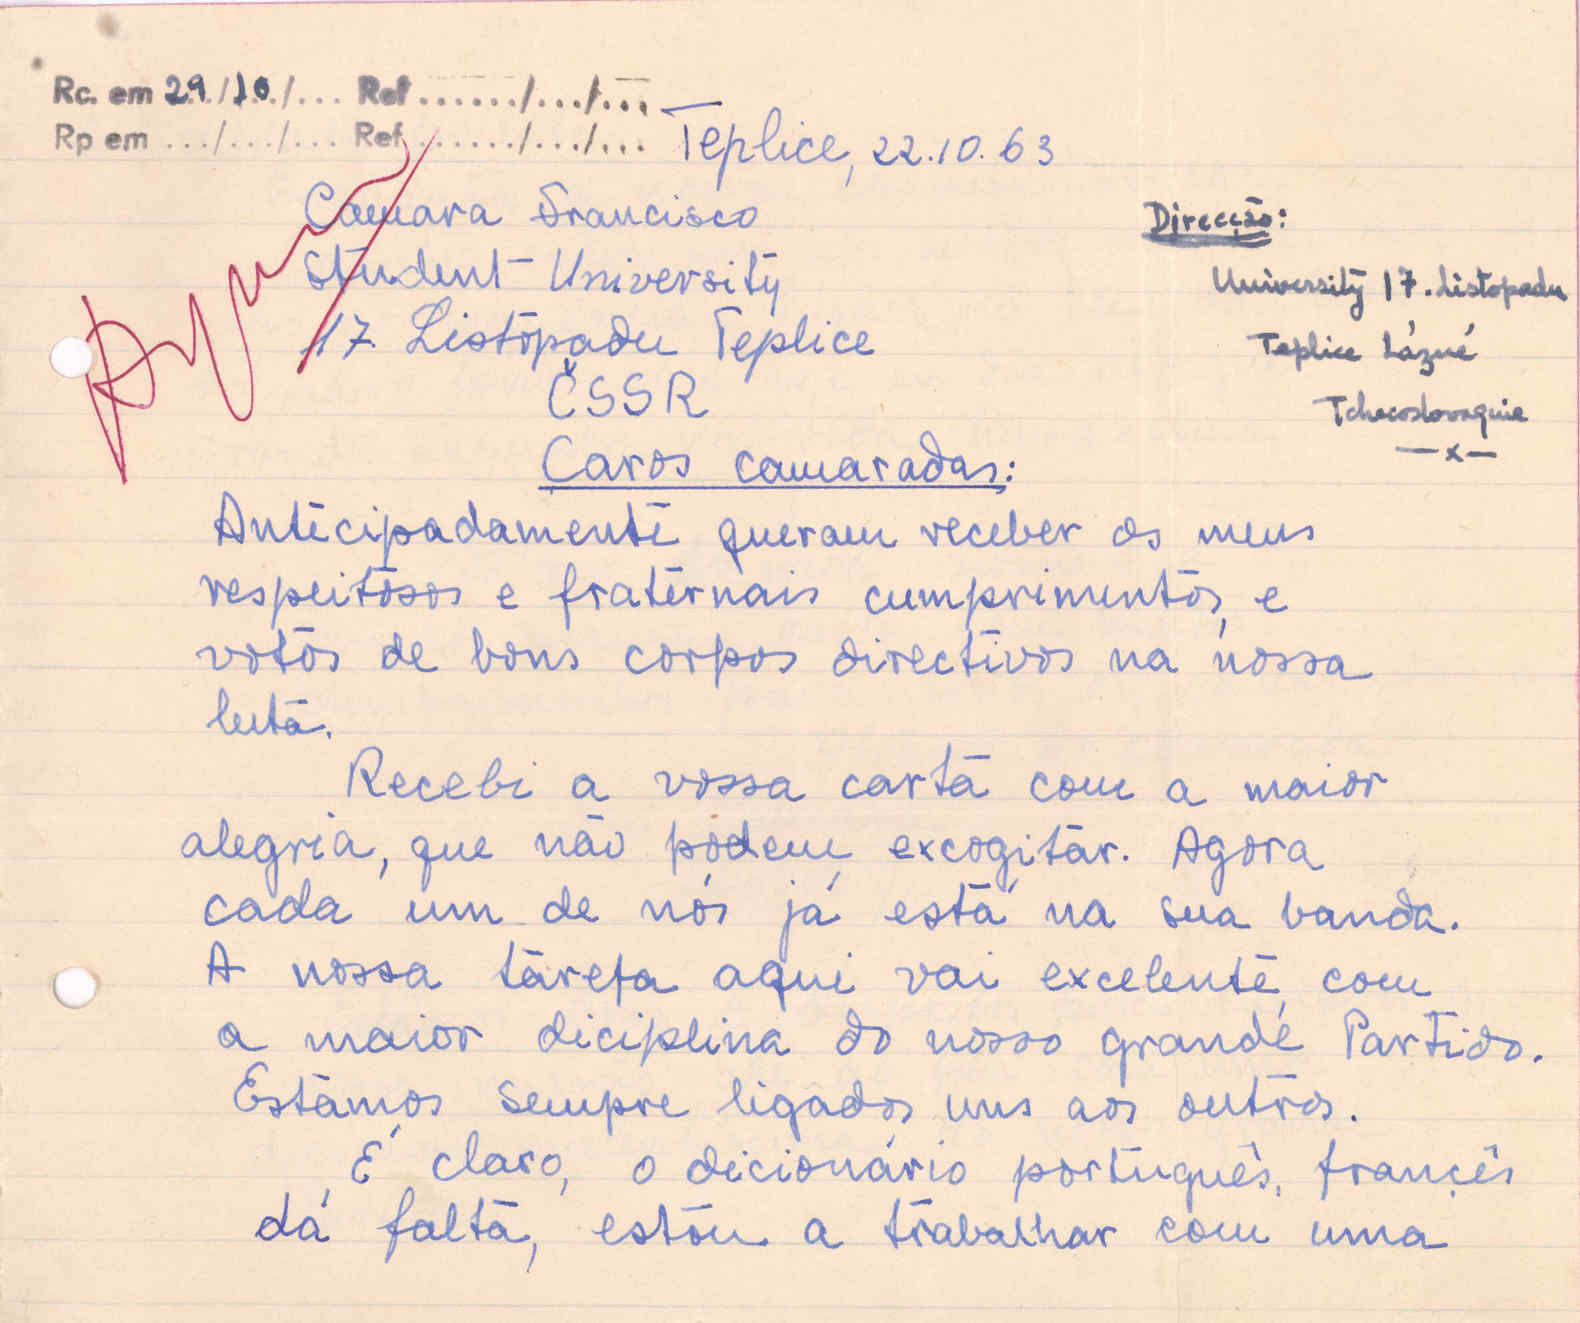 Rc. em 29./10./... Ref ....../.../...
Rp em .../.../... Ref ....../.../...
Teplice, 22.10.63
Camara Francisco
Student University
17. Listopadu Teplice
ČSSR
Direcção:
University 17. Listopadu
Teplice Lázné
Tchecoslovaquie
—x—
Caros camaradas:
Antecipadamente queram receber os meus
respeitosos e fraternais cumprimentos, e
votos de bons corpos directivos na nossa
luta.
Recebi a vossa carta com a maior
alegria, que não pódem excogitar. Agora
cada um de nós já está na sua banda.
A nossa tarefa aqui vai excelente, com
a maior diciplina do nosso grande Partido.
Estamos sempre ligados uns aos outros.
É claro, o dicionário português, françês
dá falta, estou a trabalhar com uma